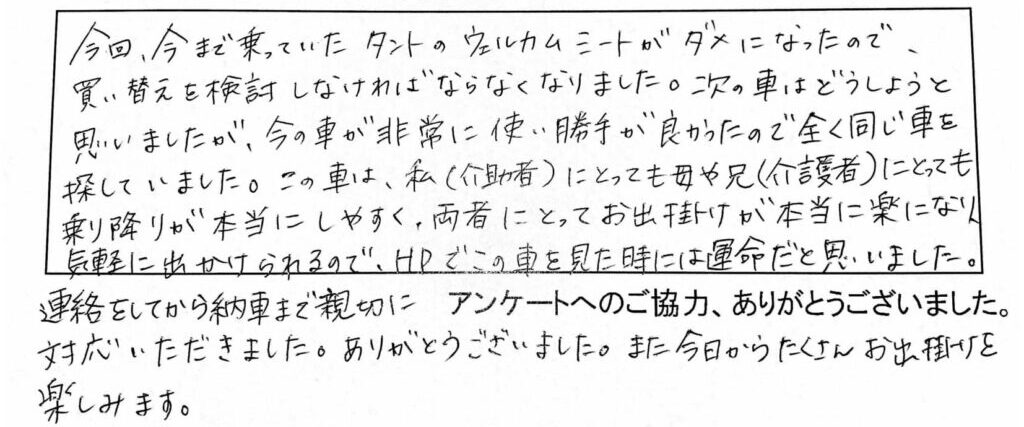 今回、今まで乗っていたタントのウェルカムシートがダメになったので、
買い替えを検討しなければならなくなりました。次の車はどうしようと
思いましたが、今の車が非常に使い勝手が良かったので全く同じ車を
探していました。この車は、私(介助者)にとっても母や兄(介護者)にとっても
乗り降りが本当にしやすく、両者にとってお出掛けが本当に楽になり
気軽に出かけられるので、HPでこの車を見た時には運命だと思いました。
連絡をしてから納車まで親切に アンケートへのご協力、ありがとうございました。
対応いただきました。ありがとうございました。また今日からたくさんお出掛けを
楽しみます。